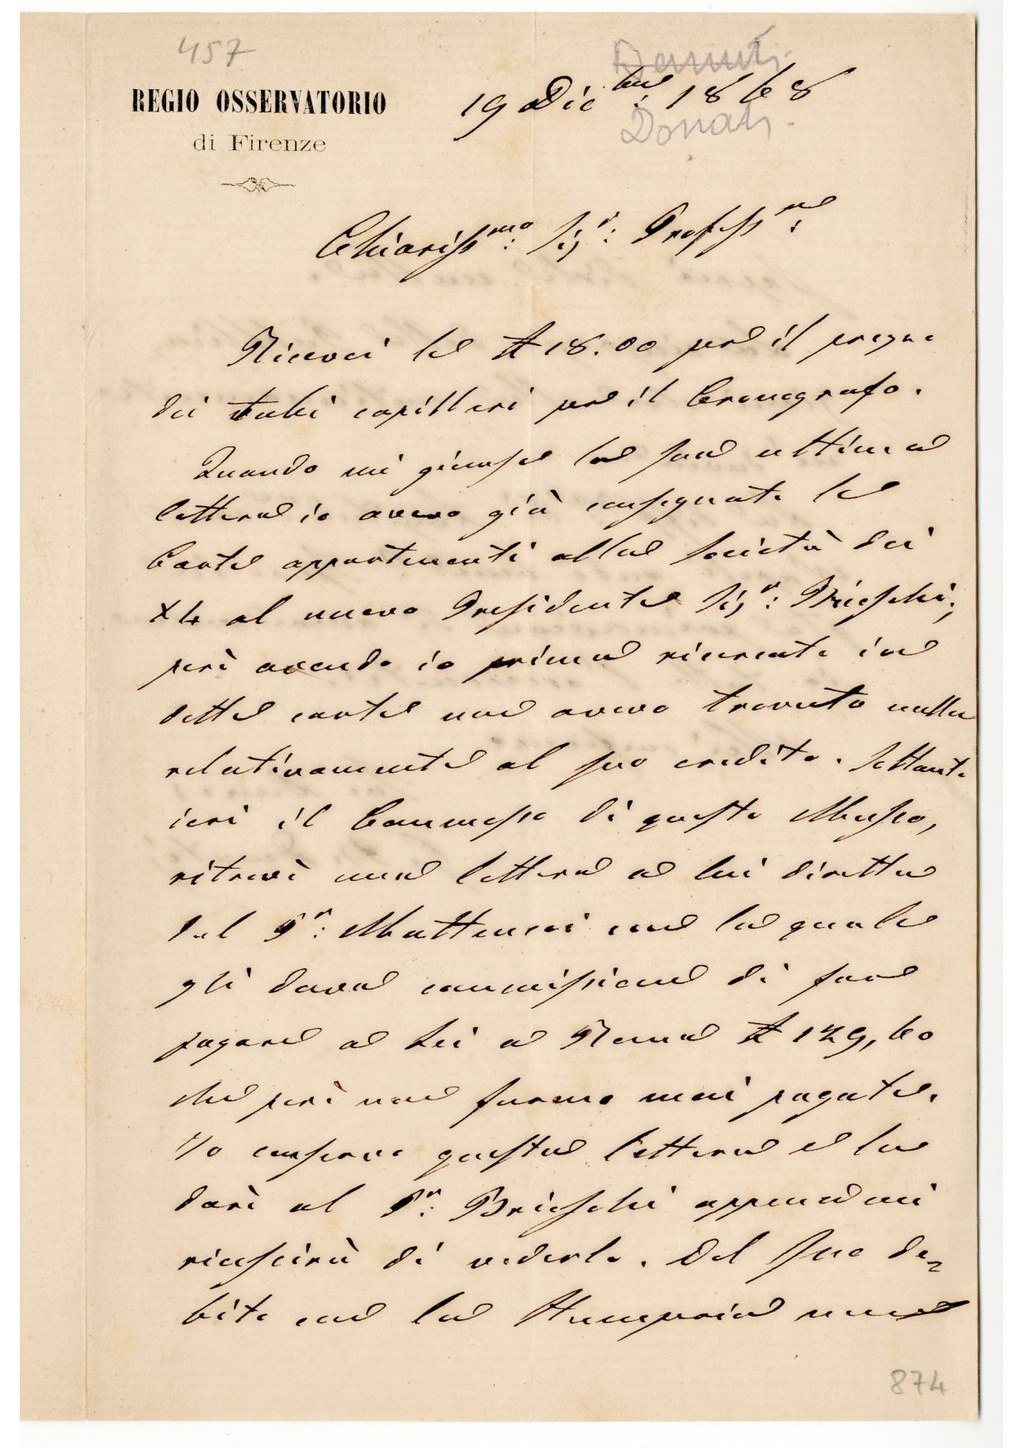 457
Donati.
REGIO OSSERVATORIO
di Firenze
19 Dicbre: 1868
Donati.
Chiarissmo: Sigr: Professre:
Ricevei le £ 18.00 per il prezzo
dei tubi capillari per il Cronografo.
Quando mi giunse la sua ultima
lettera io avevo già consegnate le
Carte appartenenti alla Società dei
XL al nuovo Presidente Sigr: Brioschi;
però avendo io prima ricercato in
dette carte non avevo trovato nulla
relativamente al suo credito. Soltanto
ieri il Economo di questo Museo,
ritrovò una lettera a lui diretta
dal Sr: Matteucci con la quale
gli dava commissione di far
pagare a Lei a Roma £ 129,60
che però non furono mai pagate.
Io conservo questa lettera e la
darò al Sr: Brioschi appena mi
riuscirà di vederlo. Del suo de-
bito con la Stamperia non
874